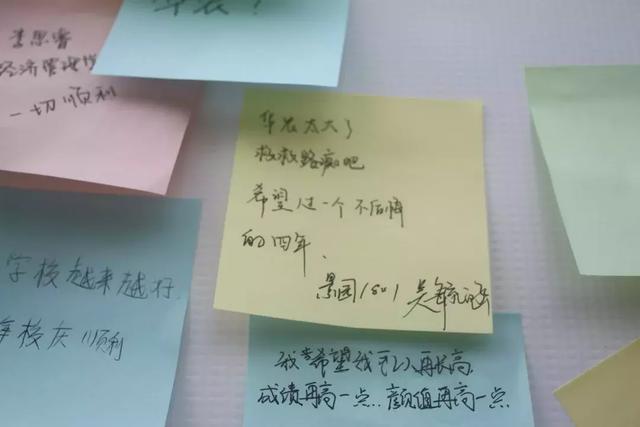 华农！
李思睿
经济管理学
一切顺利
华农太大了
救救路痴吧
希望过一个不后悔
的四年.
景园1801
学校越来越好.
年校庆顺利
我希望我可以再长高.
成绩再高一点..颜值再高一点.